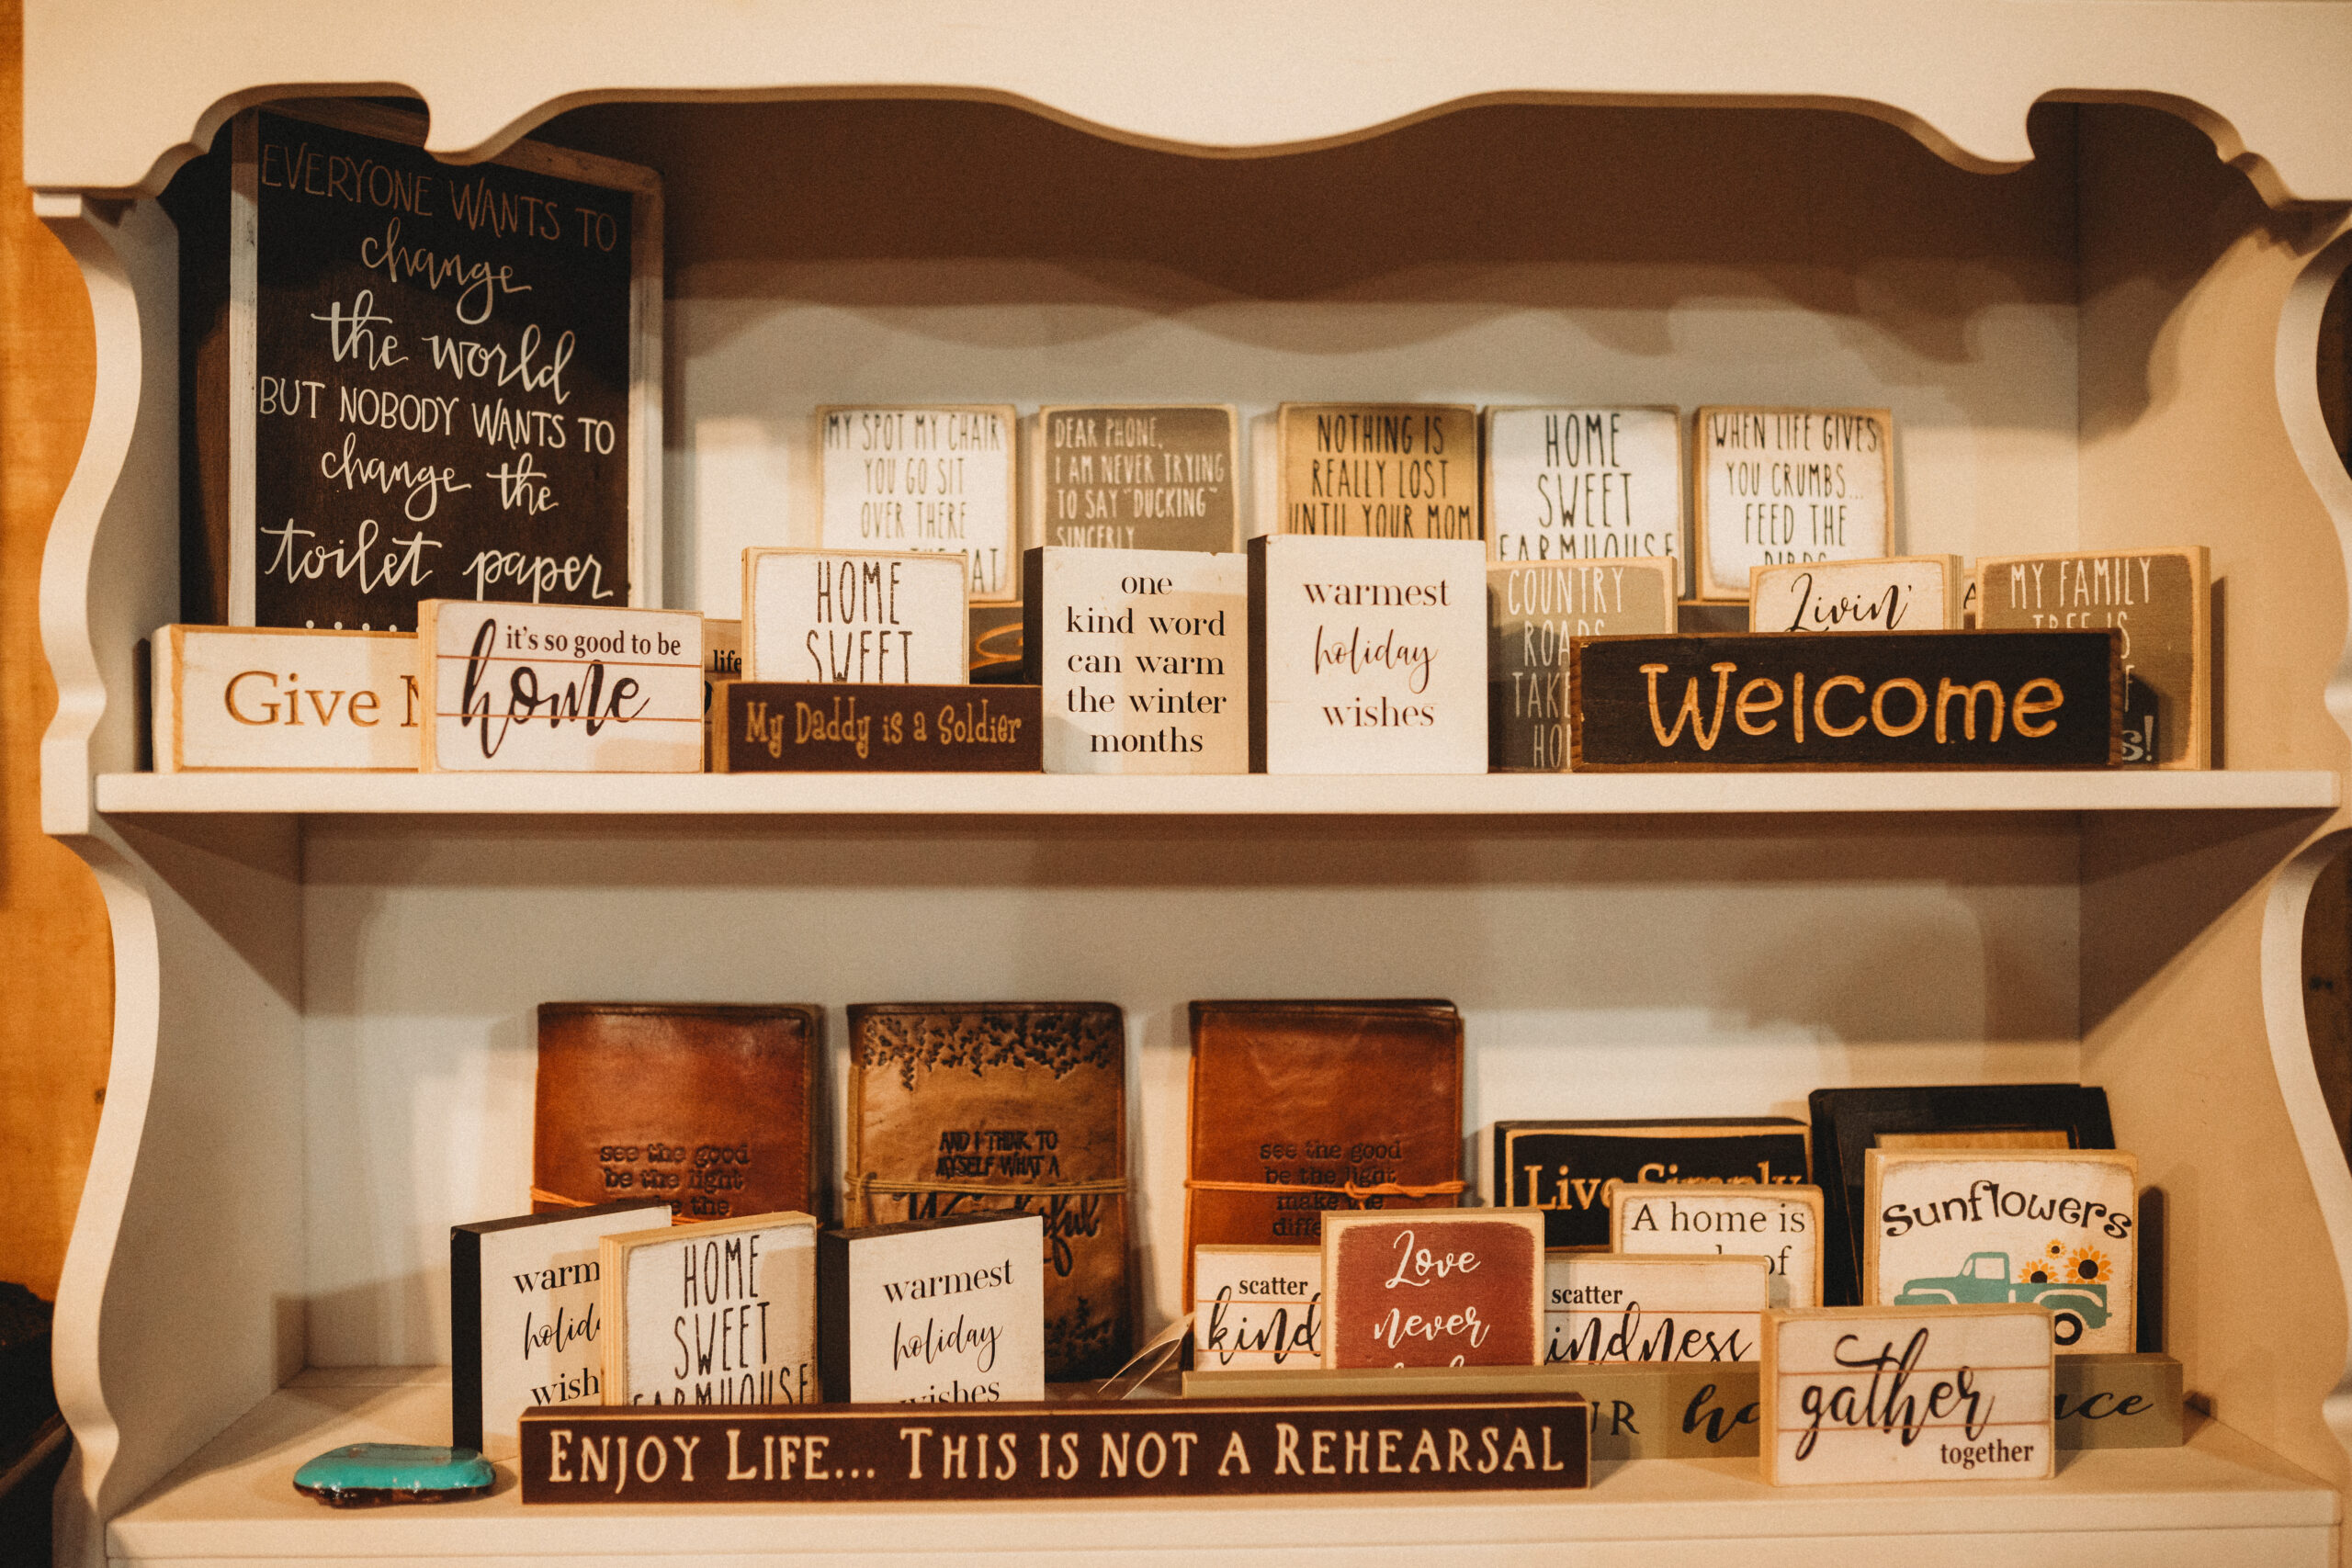 EVERYONE WANTS TO
change
the world
BUT NOBODY WANTS TO
change the
toilet paper
MY SPOT MY CHAIR
YOU GO SIT
OVER THERE
DEAR PHONE,
I AM NEVER TRYING
TO SAY "DUCKING"
SINCERLY
NOTHING IS
REALLY LOST
UNTIL YOUR MOM
HOME
SWEET
FARMHOUSE
WHEN LIFE GIVES
YOU CRUMBS...
FEED THE
BIRDS
Give
it's so good to be
home
life
HOME
SWEET
My Daddy is a Soldier
one
kind word
can warm
the winter
months
warmest
holiday
wishes
COUNTRY
ROADS
TAKE
HO
Livin'
MY FAMILY
TREE IS
F
s!
Welcome
see the good
be the light
the
AND I THINK TO
MYSELF WHAT A
see the good
be the light
make the
diffe
Live Simply
A home is
of
Sunflowers
warm
holid
wish
HOME
SWEET
FARMHOUSE
warmest
holiday
wishes
scatter
kind
Love
never
scatter
indness
UR ho ace
gather
together
ENJOY LIFE... THIS IS NOT A REHEARSAL